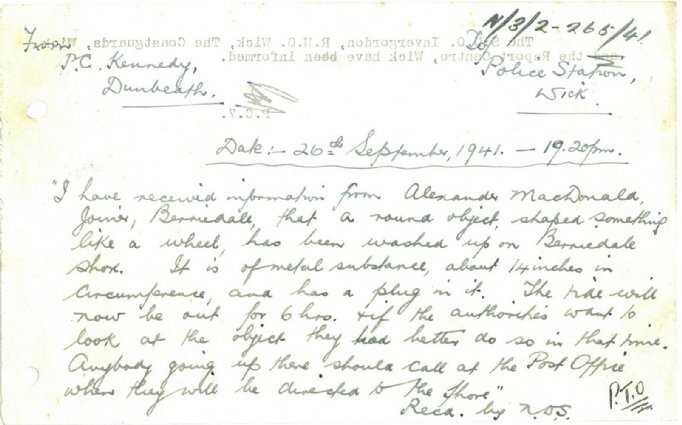 N/3/2-265/41
From
P.C. Kennedy,
Dunbeath.
To
Police Station,
Wick.
The S.N.O. Invergordon, R.N.O. Wick, The Coastguards, Wick
and the Report Centre, Wick have been informed.
P.C.7.
Date:- 26th September, 1941. - 19.20pm.
"I have received information from Alexander MacDonald,
Joiner, Berriedale, that a round object, shaped something
like a wheel, has been washed up on Berriedale
shore. It is of metal substance, about 14 inches in
circumference, and has a plug in it. The tide will
now be out for 6 hrs. & if the authorities want to
look at the object they had better do so in that time.
Anybody going up there should call at the Post Office
when they will be directed to the shore"
Recd. by N.D.S.
P.T.O